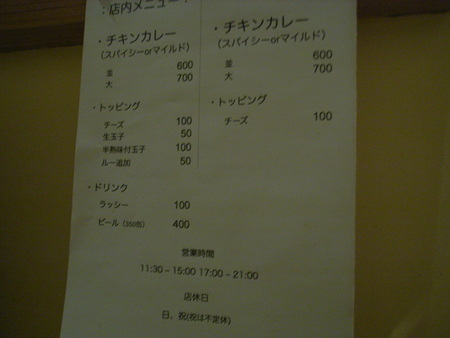 ：店内メニュー：
・チキンカレー
（スパイシーorマイルド）
並 600
大 700
・トッピング
チーズ 100
生玉子 50
半熟味付玉子 100
ルー追加 50
・ドリンク
ラッシー 100
ビール（350缶） 400
・チキンカレー
（スパイシーorマイルド）
並 600
大 700
・トッピング
チーズ 100
営業時間
11:30－15:00 17:00－21:00
店休日
日，祝(祝は不定休)